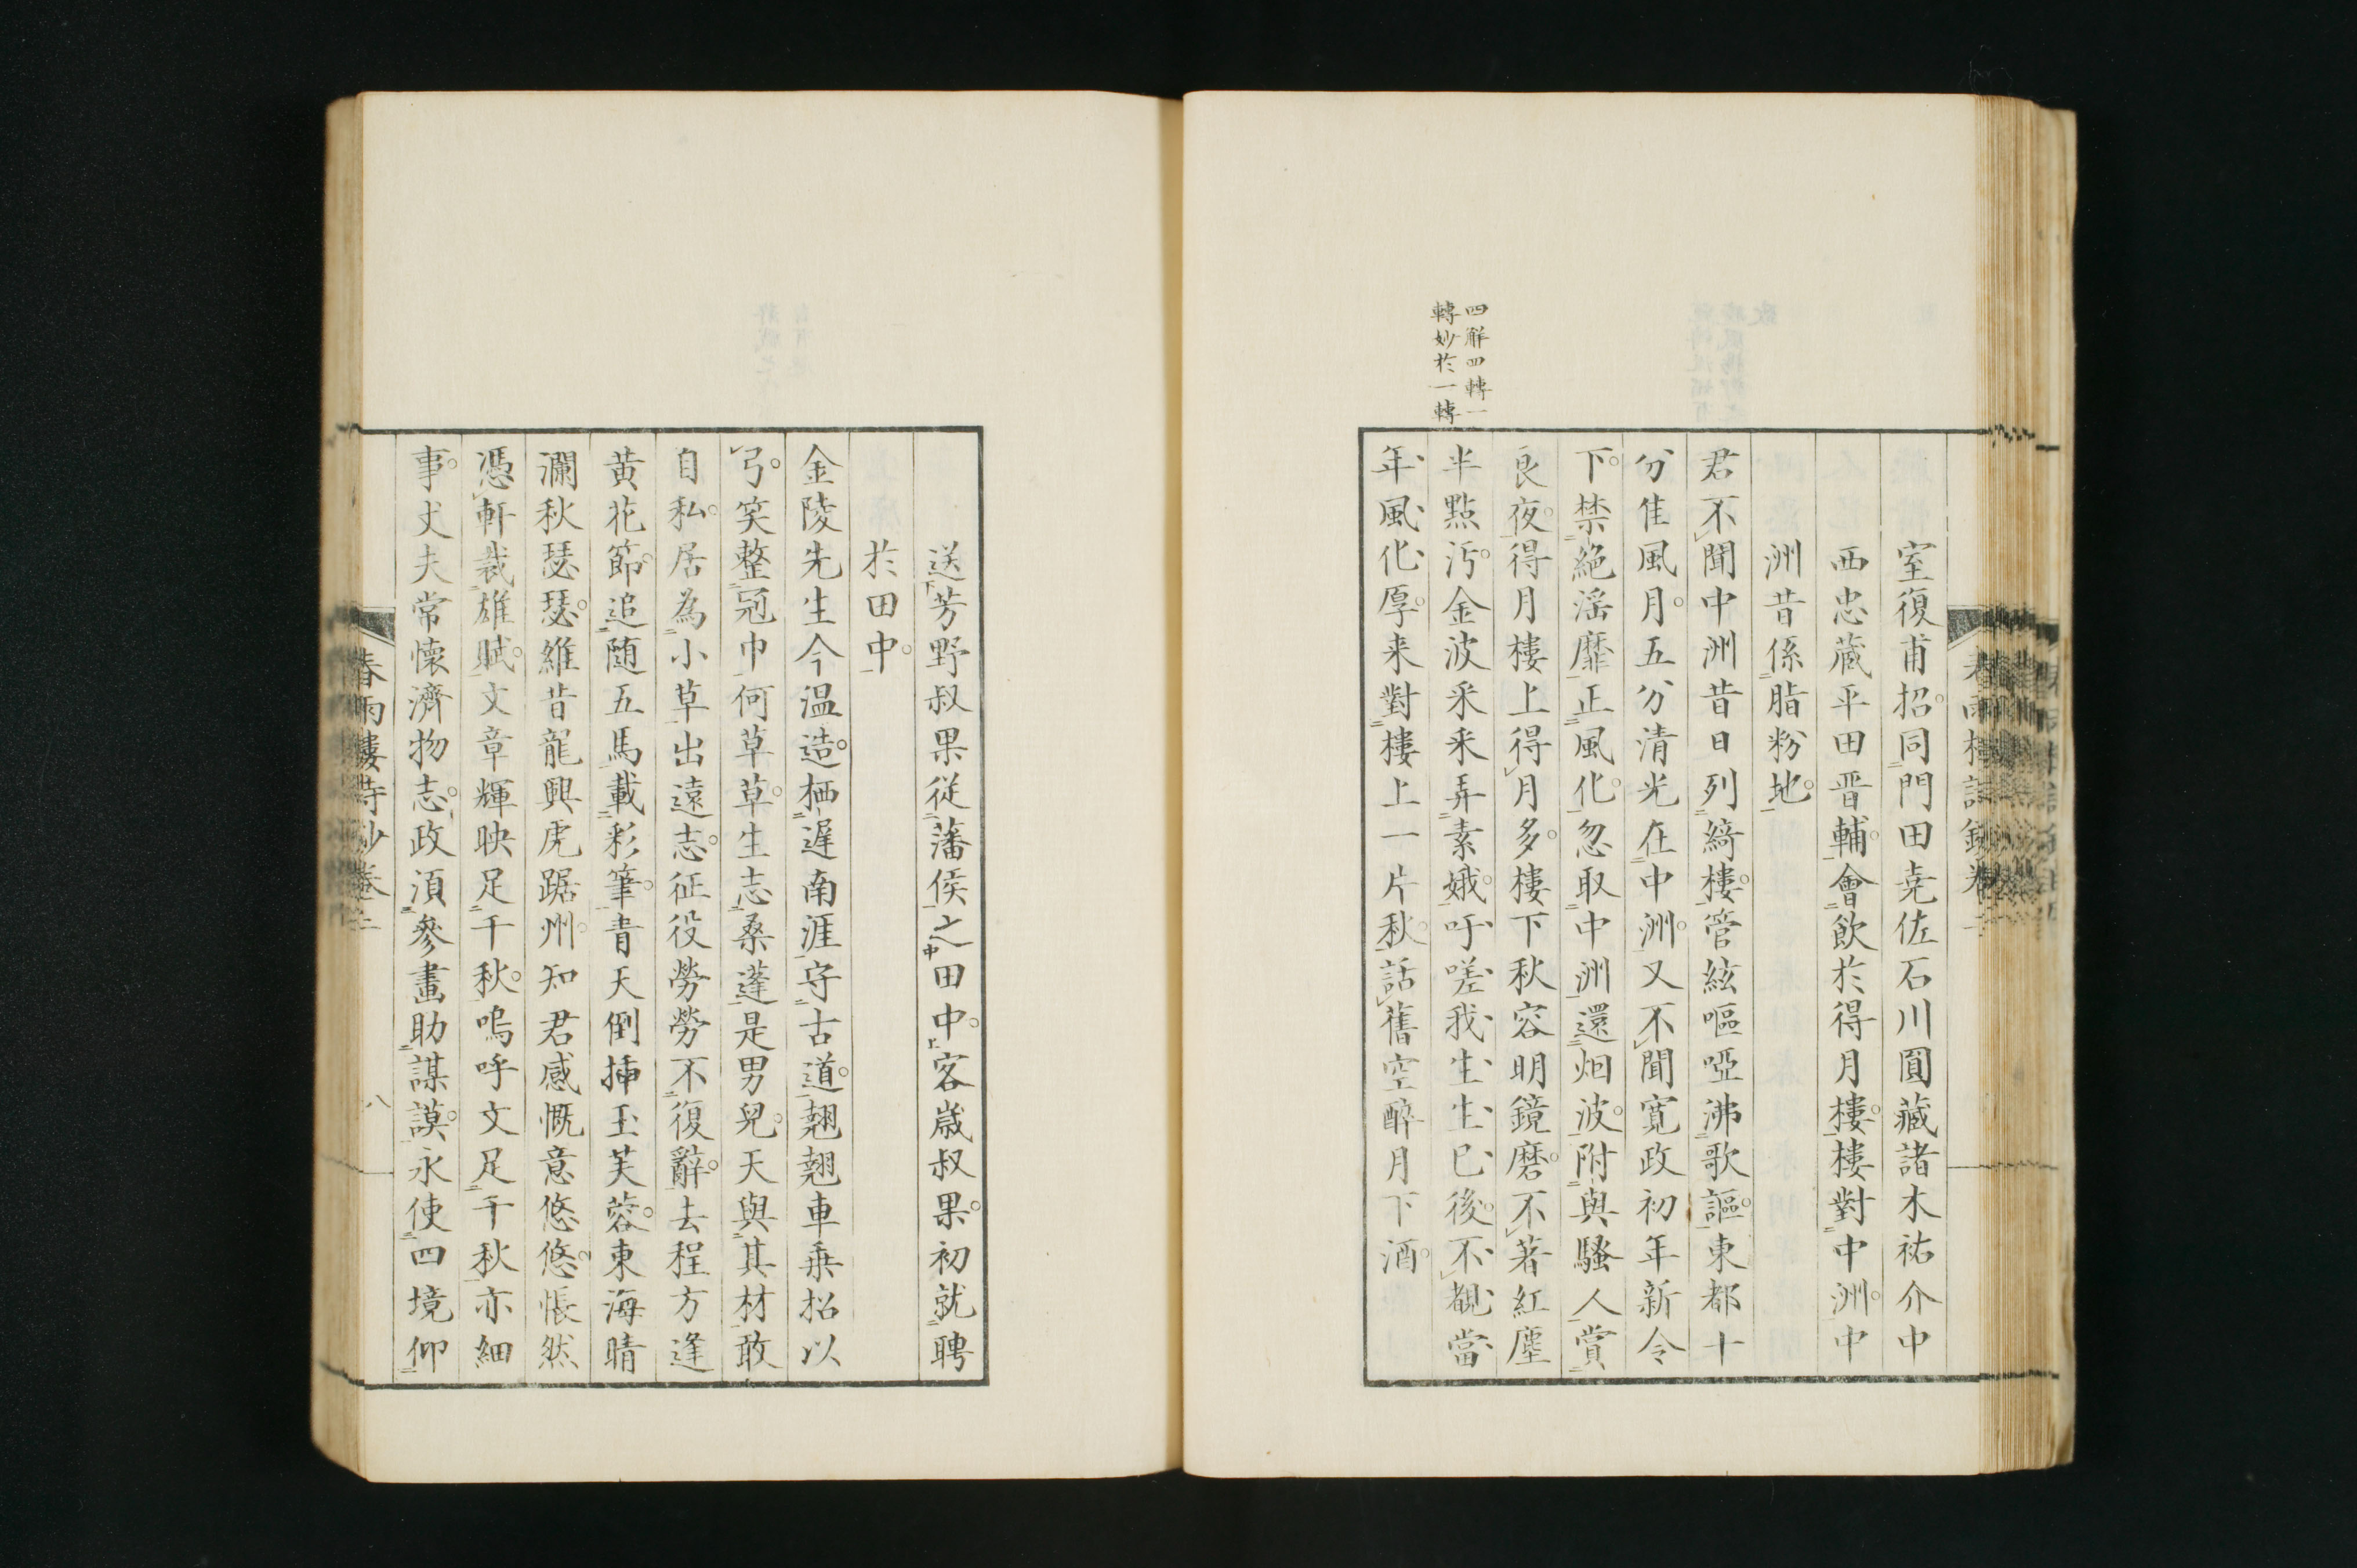 室復甫招同門田堯佐石川圓藏諸木祐介中
西忠藏平田晋輔會飲於得月樓樓對中洲中
洲昔係脂粉地
君不聞中洲昔日列綺樓管絃嘔啞沸歌謳東都十
分佳風月五分清光在中洲又不聞寛政初年新令
下禁絶滛靡正風化忽取中洲還烟波附與騷人賞
良夜得月樓上得月多樓下秋容明鏡磨不著紅塵
四解四轉一
轉妙於一轉
半點汚金波采采弄素娥吁嗟我生生已後不覩當
年風化厚来對樓上一片秋話舊空醉月下酒
送芳野叔果従藩侯之田中客歳叔果初就聘
於田中
金陵先生今温造栖遅南涯守古道翹翹車乗招以
弓笑整冠巾何草草生志桑蓬是男兒天與其材敢
自私居為小草出遠志征役勞勞不復辭去程方逢
黄花節追随五馬載彩筆青天倒挿玉芙蓉東海晴
瀾秋瑟瑟維昔龍興虎踞州知君感慨意悠悠悵然
憑軒裁雄賦文章輝映足千秋嗚呼文足千秋亦細
事丈夫常懷濟物志政湏參畫助謀謨永使四境仰
春雨樓詩鈔卷二
八